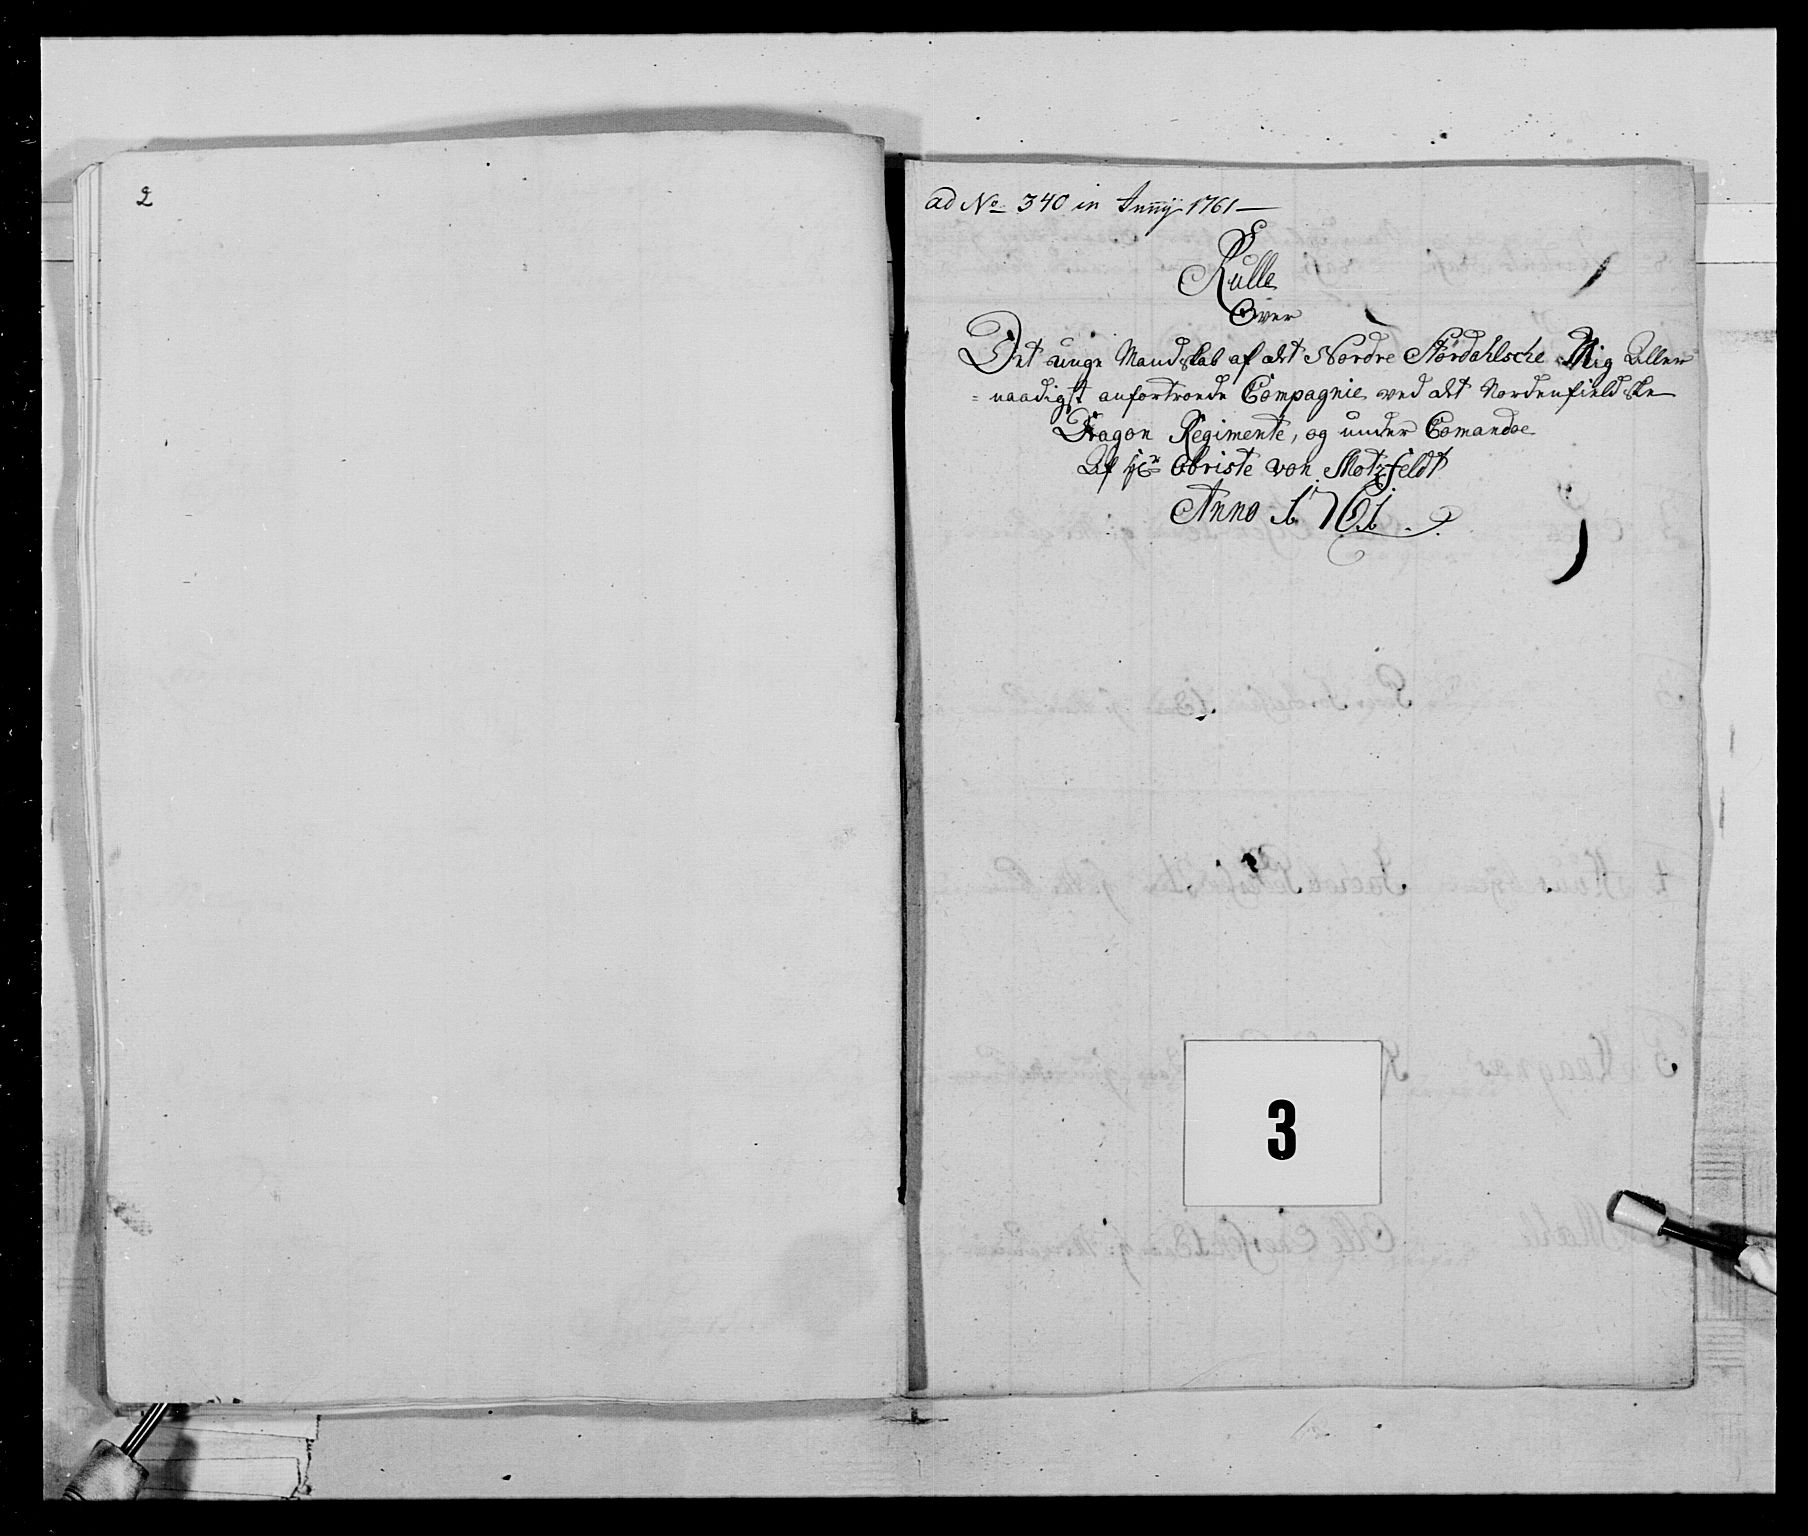 2
ad No 340 in Junij 1761
Rulle
Over
Det unge Mandskab af det Nordre Størdahlsche Mig Aller
= naadigst anfortroede Compagnie ved det Nordenfieldske
Dragon Regimente, og under Comandoe
Af Hr Obriste von Motzfeldt
Anno 1761.
3